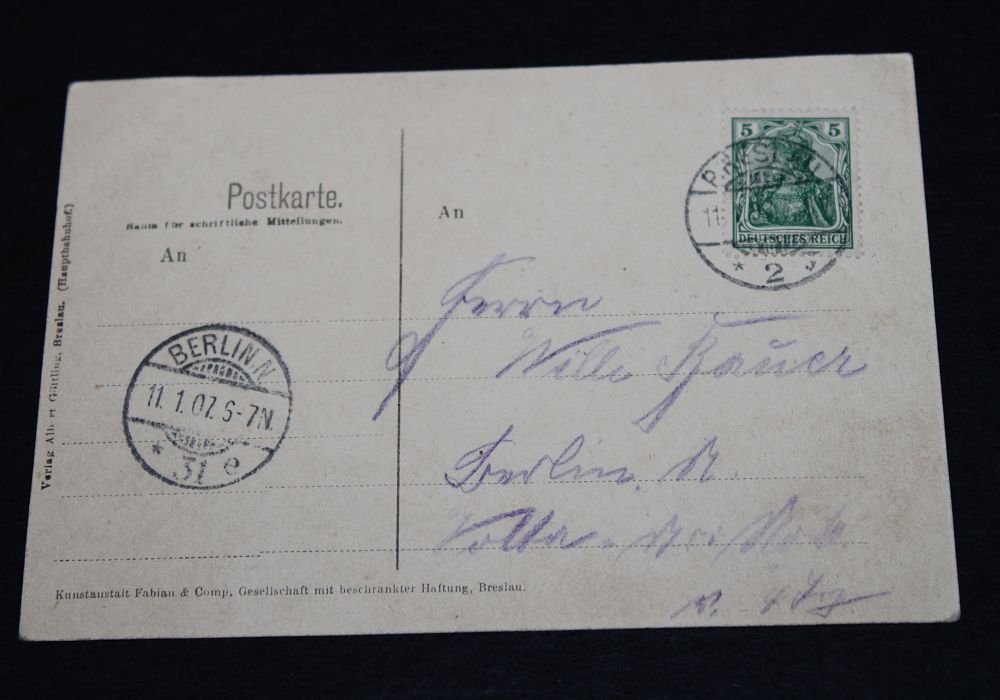 Postkarte.
Raum für schriftliche Mitteilungen.
An
An
5 5
DEUTSCHES REICH
BRESLAU
11
* 2
Herrn
Willi Bauer
Berlin. N.
BERLIN N.
11. 1. 07. 6-7N.
* 31 e
Verlag Albert Göttling, Breslau. (Hauptbahnhof.)
Kunstanstalt Fabian & Comp. Gesellschaft mit beschränkter Haftung, Breslau.